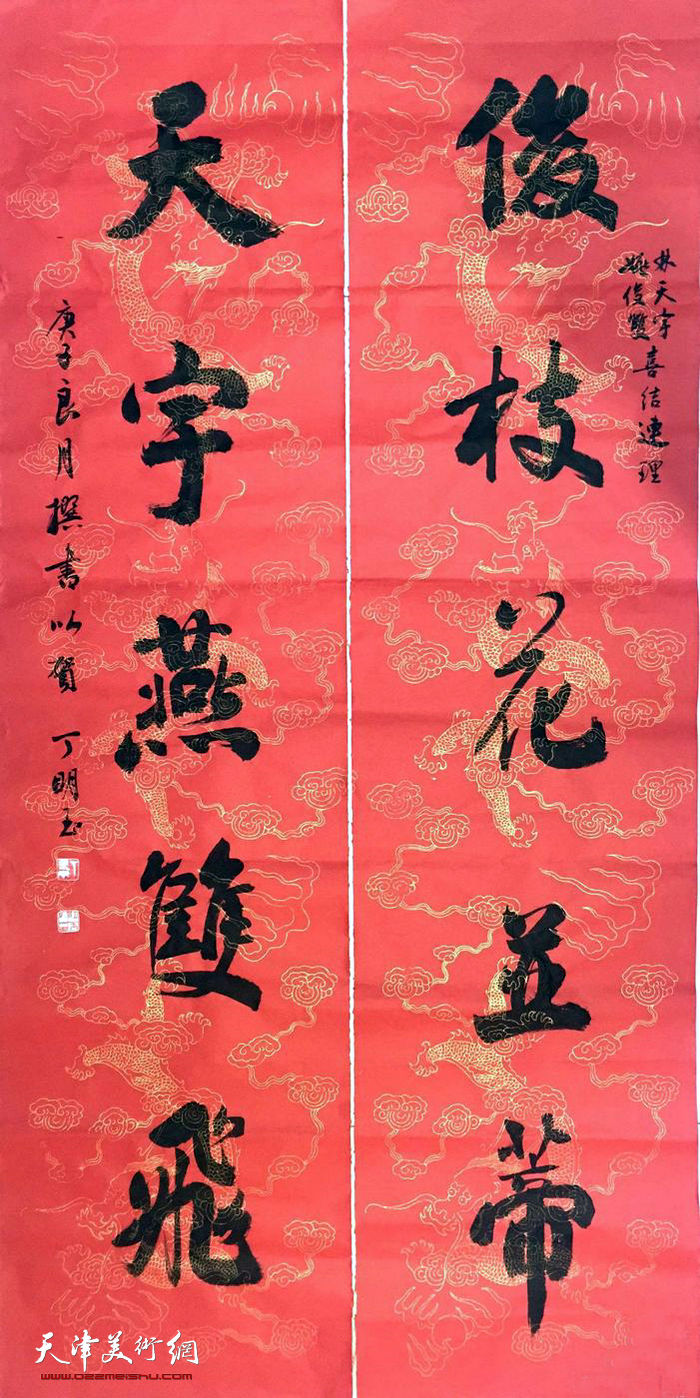 俊枝花並蒂
林天宇
姚俊豔喜结連理
天宇燕雙飛
庚子良月撰書以賀 丁明玉
天津美術網
www.022meishu.com